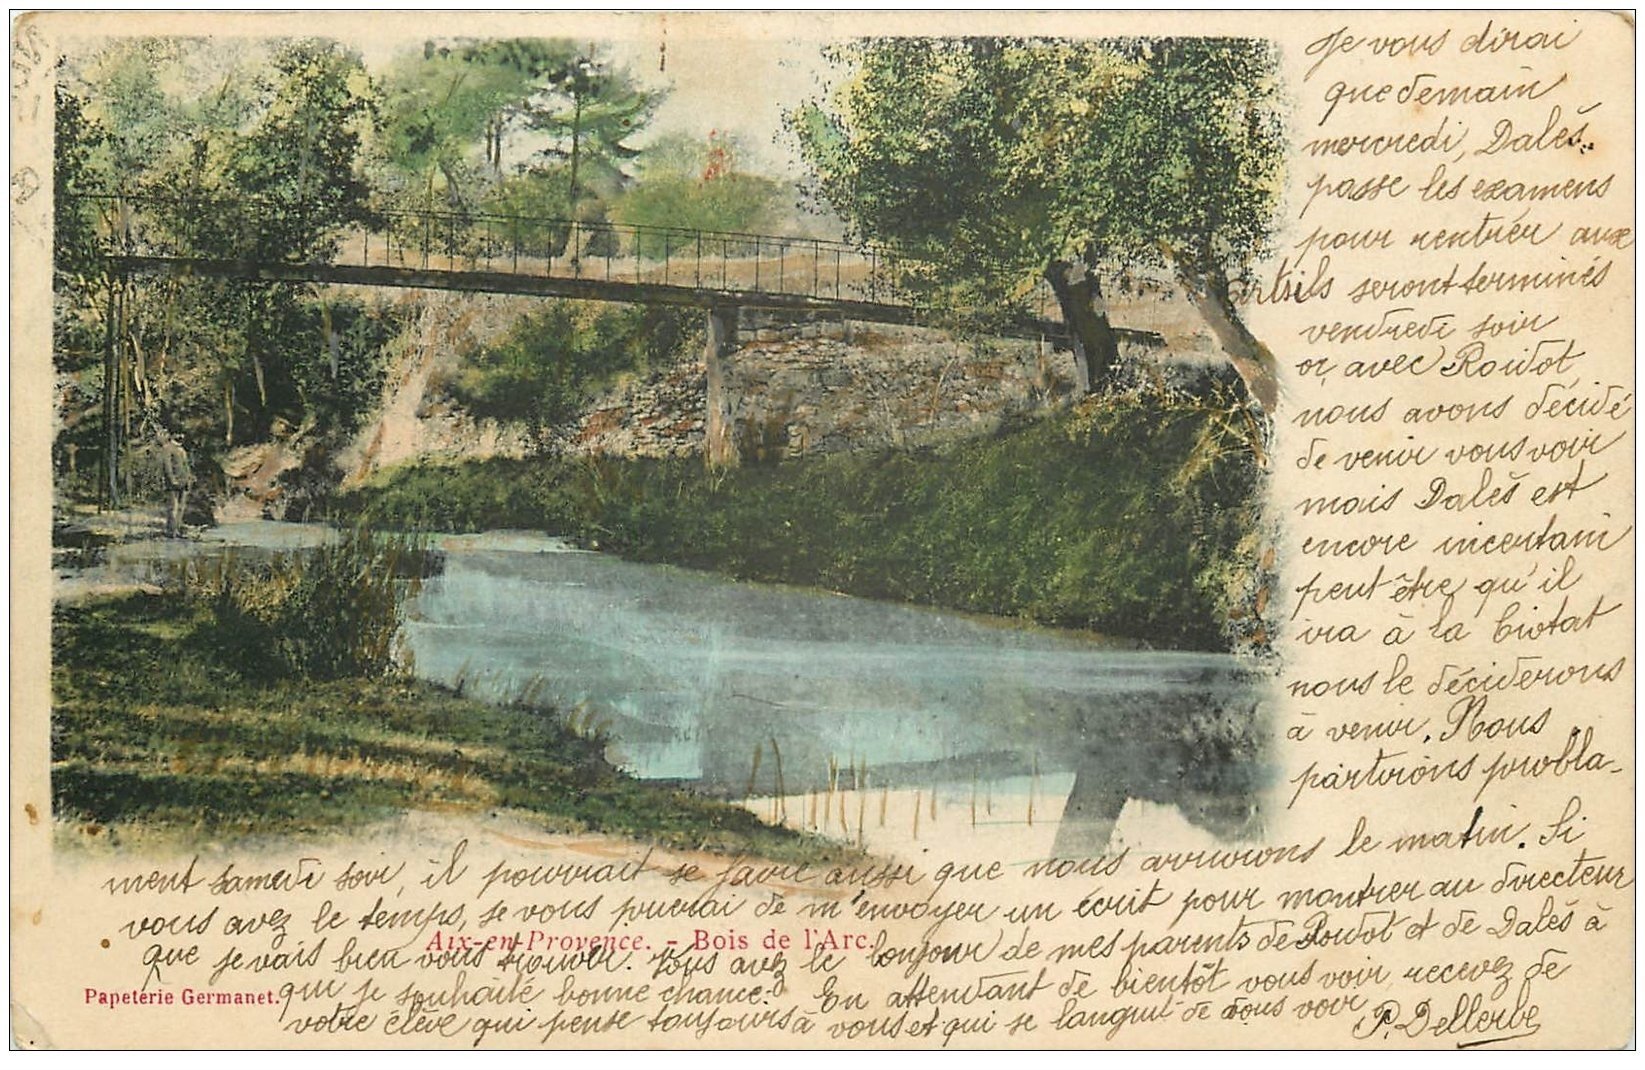 Je vous dirai
que demain
mercredi, Dalès
passe les examens
pour rentrer aux
arts ils seront terminés
vendredi soir
or, avec Roidot
nous avons décidé
de venir vous voir
mais Dalès est
encore incertain
peut être qu'il
ira à la Ciotat
nous le déciderons
à venir. Nous
partirions probla-
ment samedi soir, il pourrait se faire aussi que nous arrivions le matin. Si
vous avez le temps, je vous prierai de m'envoyer un écrit pour montrer au directeur
que je vais bien vous trouver. Vous avez le bonjour de mes parents de Roidot et de Dalès à
Aix-en-Provence. - Bois de l'Arc.
qui je souhaite bonne chance. En attendant de bientôt vous voir, recevez de
Papeterie Germanet.
votre élève qui pense toujours à vous et qui se languit de vous voir P. Dellerbe